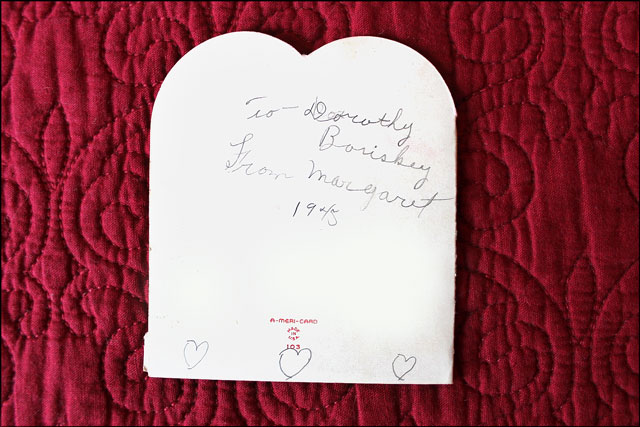 To - Dorothy
Boriskey
From Margaret
1945
A-MERI-CARD
MADE
IN
USA
103